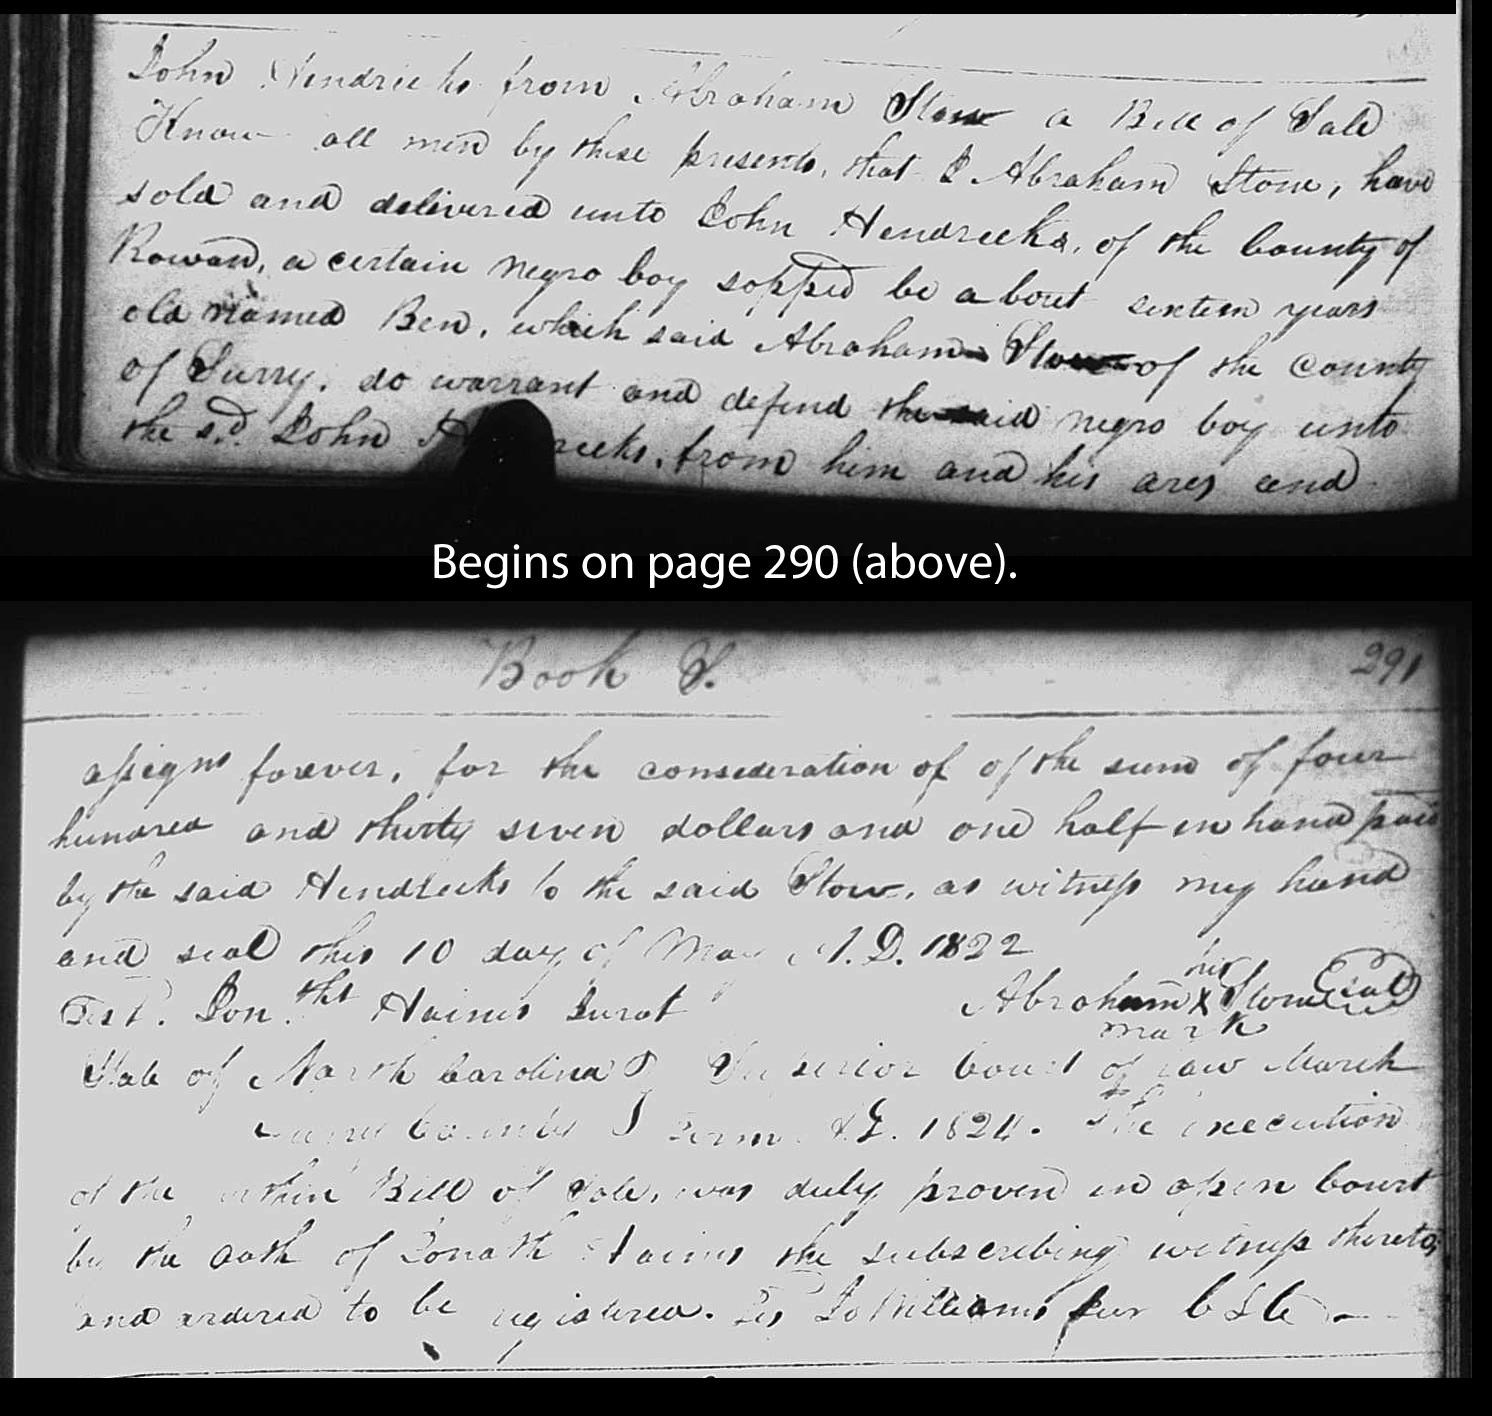 John Hendricks from Abraham Stow a Bill of Sale
Know all men by these presents, that I Abraham Stow, have
sold and delivered unto John Hendricks, of the County of
Rowan, a certain negro boy sopped be about sixteen years
old named Ben, which said Abraham Stow of the County
of Surry. do warrant and defend the said negro boy unto
the sd. John Hendricks, from him and his ares and
Begins on page 290 (above).
Book S. 291
assigns forever, for the consideration of of the sum of four
hundred and thirty seven dollars and one half in hand paid
by the said Hendricks to the said Stow, as witness my hand
and seal this 10 day of May A.D. 1822
his
Test. Jon.tht Haines Jurat Abraham X Stow Seal
mark
State of North Carolina Superior Court of law March
Surry County Term A.D. 1824. The execution
of the within Bill of Sale, was duly proven in open Court
by the oath of Jonath Haines the subscribing witness thereto,
and ordered to be registered. Jo Williams Jur C S C